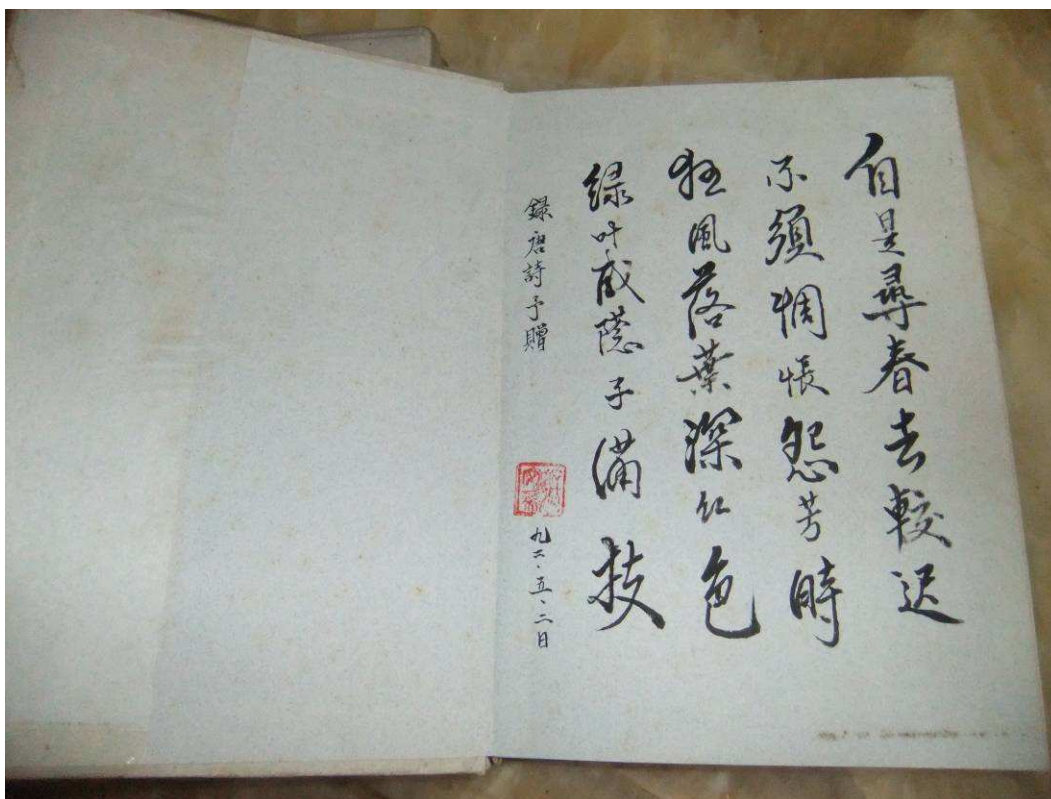 自是尋春去較迟
不須惆悵怨芳時
狂風落葉深红色
绿叶成隐子满枝
録唐詩予贈
九二·五·二日